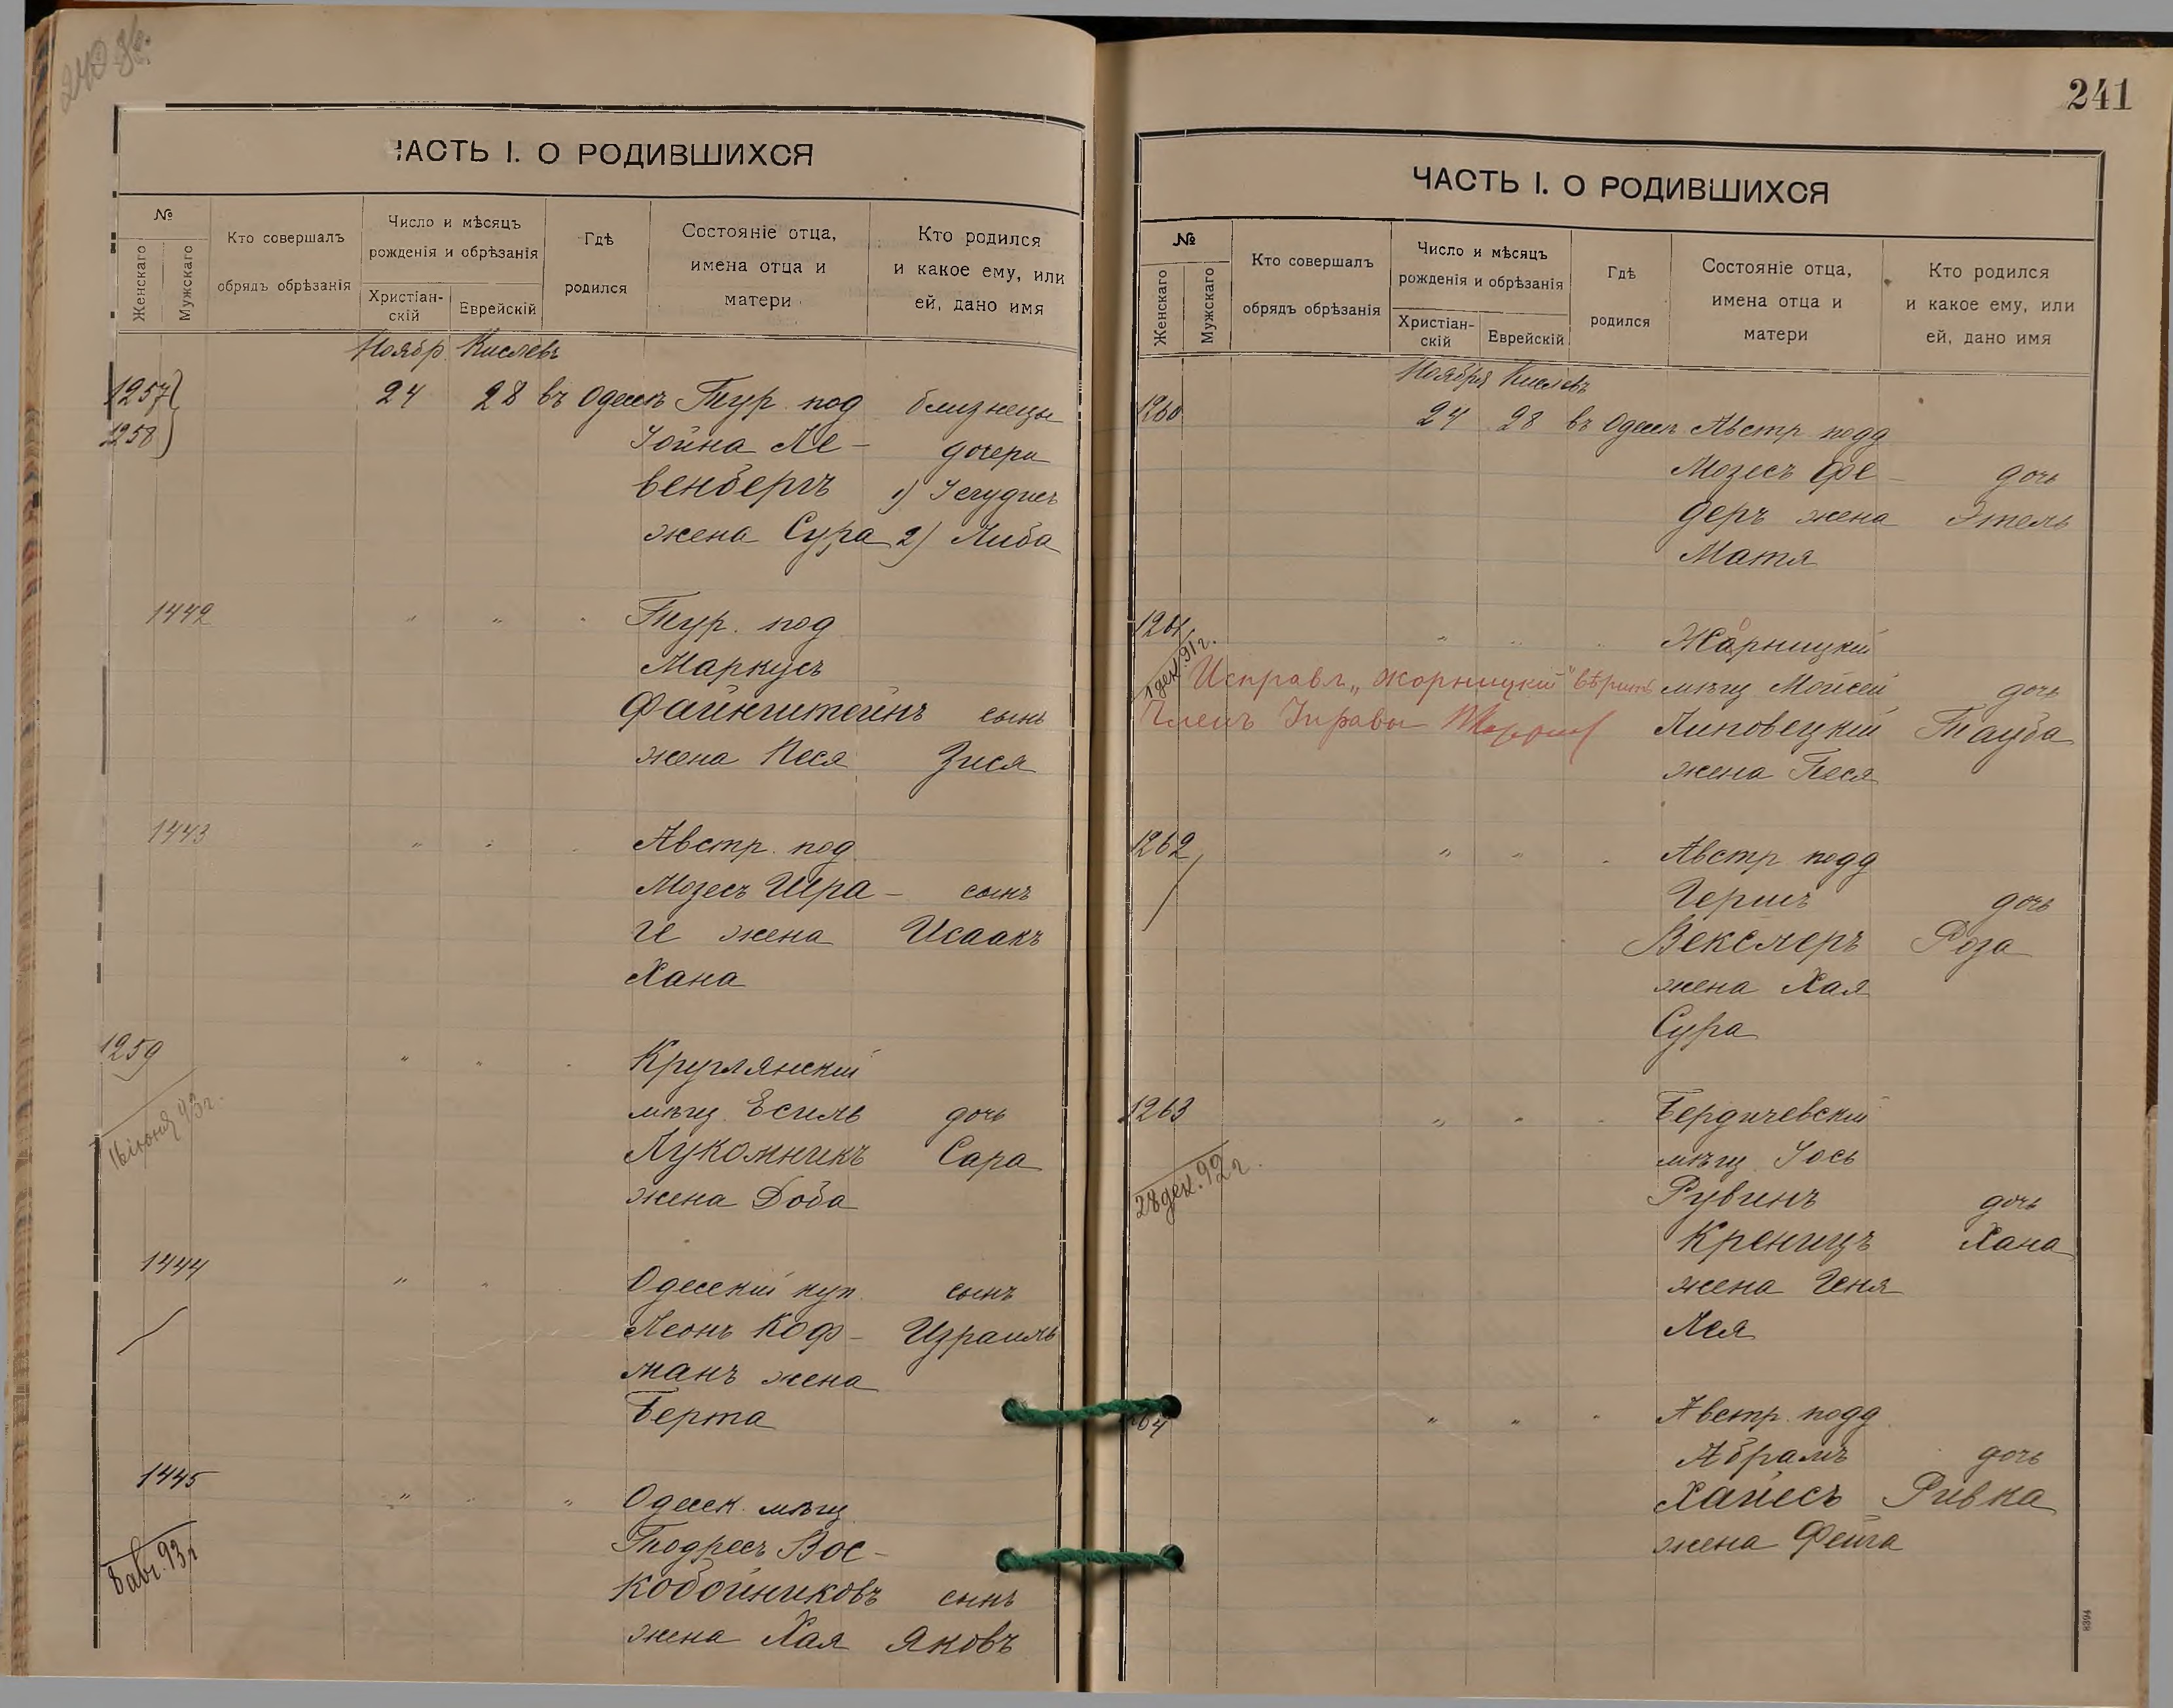 240 об.
ЧАСТЬ I. О РОДИВШИХСЯ
№
Женскаго
Мужскаго
Кто совершалъ
обрядъ обрѣзанія
Число и мѣсяцъ
рожденія и обрѣзанія
Христіан-
скій
Еврейскій
Гдѣ
родился
Состояніе отца,
имена отца и
матери
Кто родился
и какое ему, или
ей, дано имя
Ноябр. Кислевъ
1257 24 28 въ Одессѣ Тур. под близнецы
1258 Іойна Ле- дочери
венбергъ 1) Іегудисъ
жена Сура 2) Либа
1442 " " " Тур. под
Маркусъ
Файнштейнъ сынъ
жена Песя Зися
1443 " " " Австр. под
Мозесъ Шра- сынъ
ге жена Исаакъ
Хана
1259 " " " Круглянскій
16 іюня 93 г. мѣщ. Есиль дочь
Лукомникъ Сара
жена Доба
1444 " " Одесскій куп. сынъ
Леонъ Коф- Израиль
манъ жена
Берта
1445 " " " Одесск. мѣщ.
8 авг. 93 г. Тодресъ Вос-
кобойниковъ сынъ
жена Хая Яковъ
241
ЧАСТЬ I. О РОДИВШИХСЯ
№
Женскаго
Мужскаго
Кто совершалъ
обрядъ обрѣзанія
Число и мѣсяцъ
рожденія и обрѣзанія
Христіан-
скій
Еврейскій
Гдѣ
родился
Состояніе отца,
имена отца и
матери
Кто родился
и какое ему, или
ей, дано имя
Ноября Кислевъ
1260 24 28 въ Одессѣ Австр подд
Мозесъ Фе- дочь
деръ жена Этель
Матя
1261 " " " Жарницкій
о
1 дек. 91 г. Исправл. „Жорницкій" вѣрить мѣщ Мойсей дочь
Членъ Управы Липовецкій Тауба
жена Песя
1262 " " " Австр подд
Гершъ дочь
Векслеръ Роза
жена Хая
Сура
1263 " " " Бердичевскій
28 дек. 92 г. мѣщ. Іось
Рувинъ дочь
Креницъ Хана
жена Геня
Лея
64 " " " Австр. подд
Абрамъ дочь
Хайесъ Ривка
жена Фейга